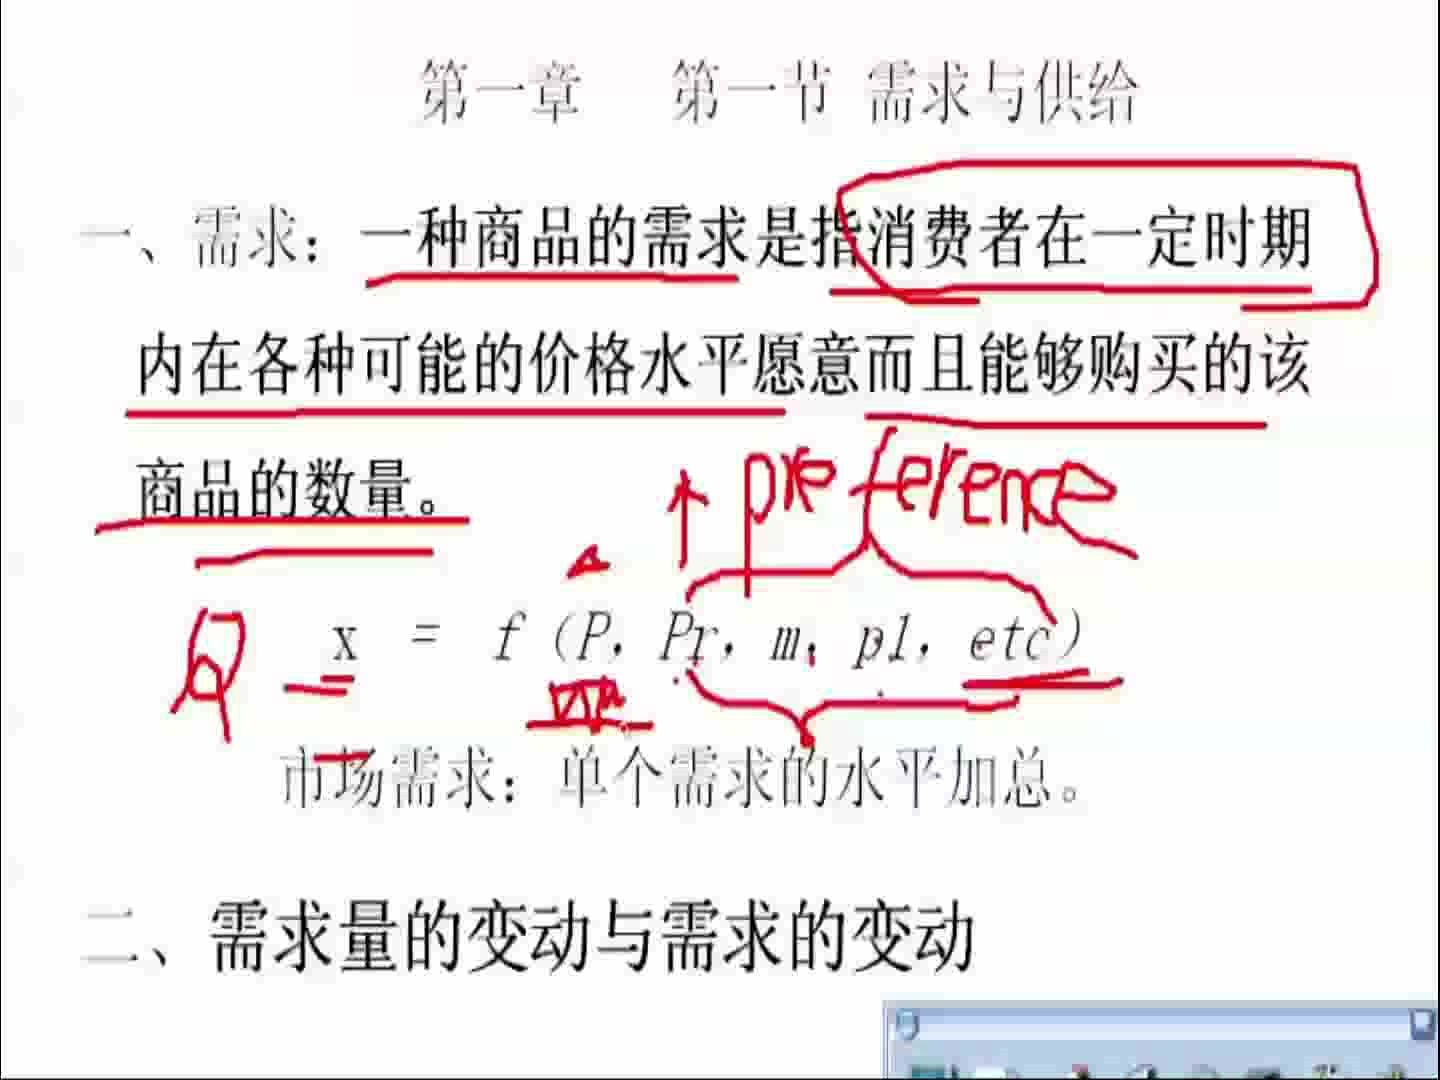 第一章 第一节 需求与供给
一、需求：一种商品的需求是指消费者在一定时期
内在各种可能的价格水平愿意而且能够购买的该
商品的数量。
preference
Q x = f (P, Pr, m, pl, etc)
市场需求：单个需求的水平加总。
二、需求量的变动与需求的变动